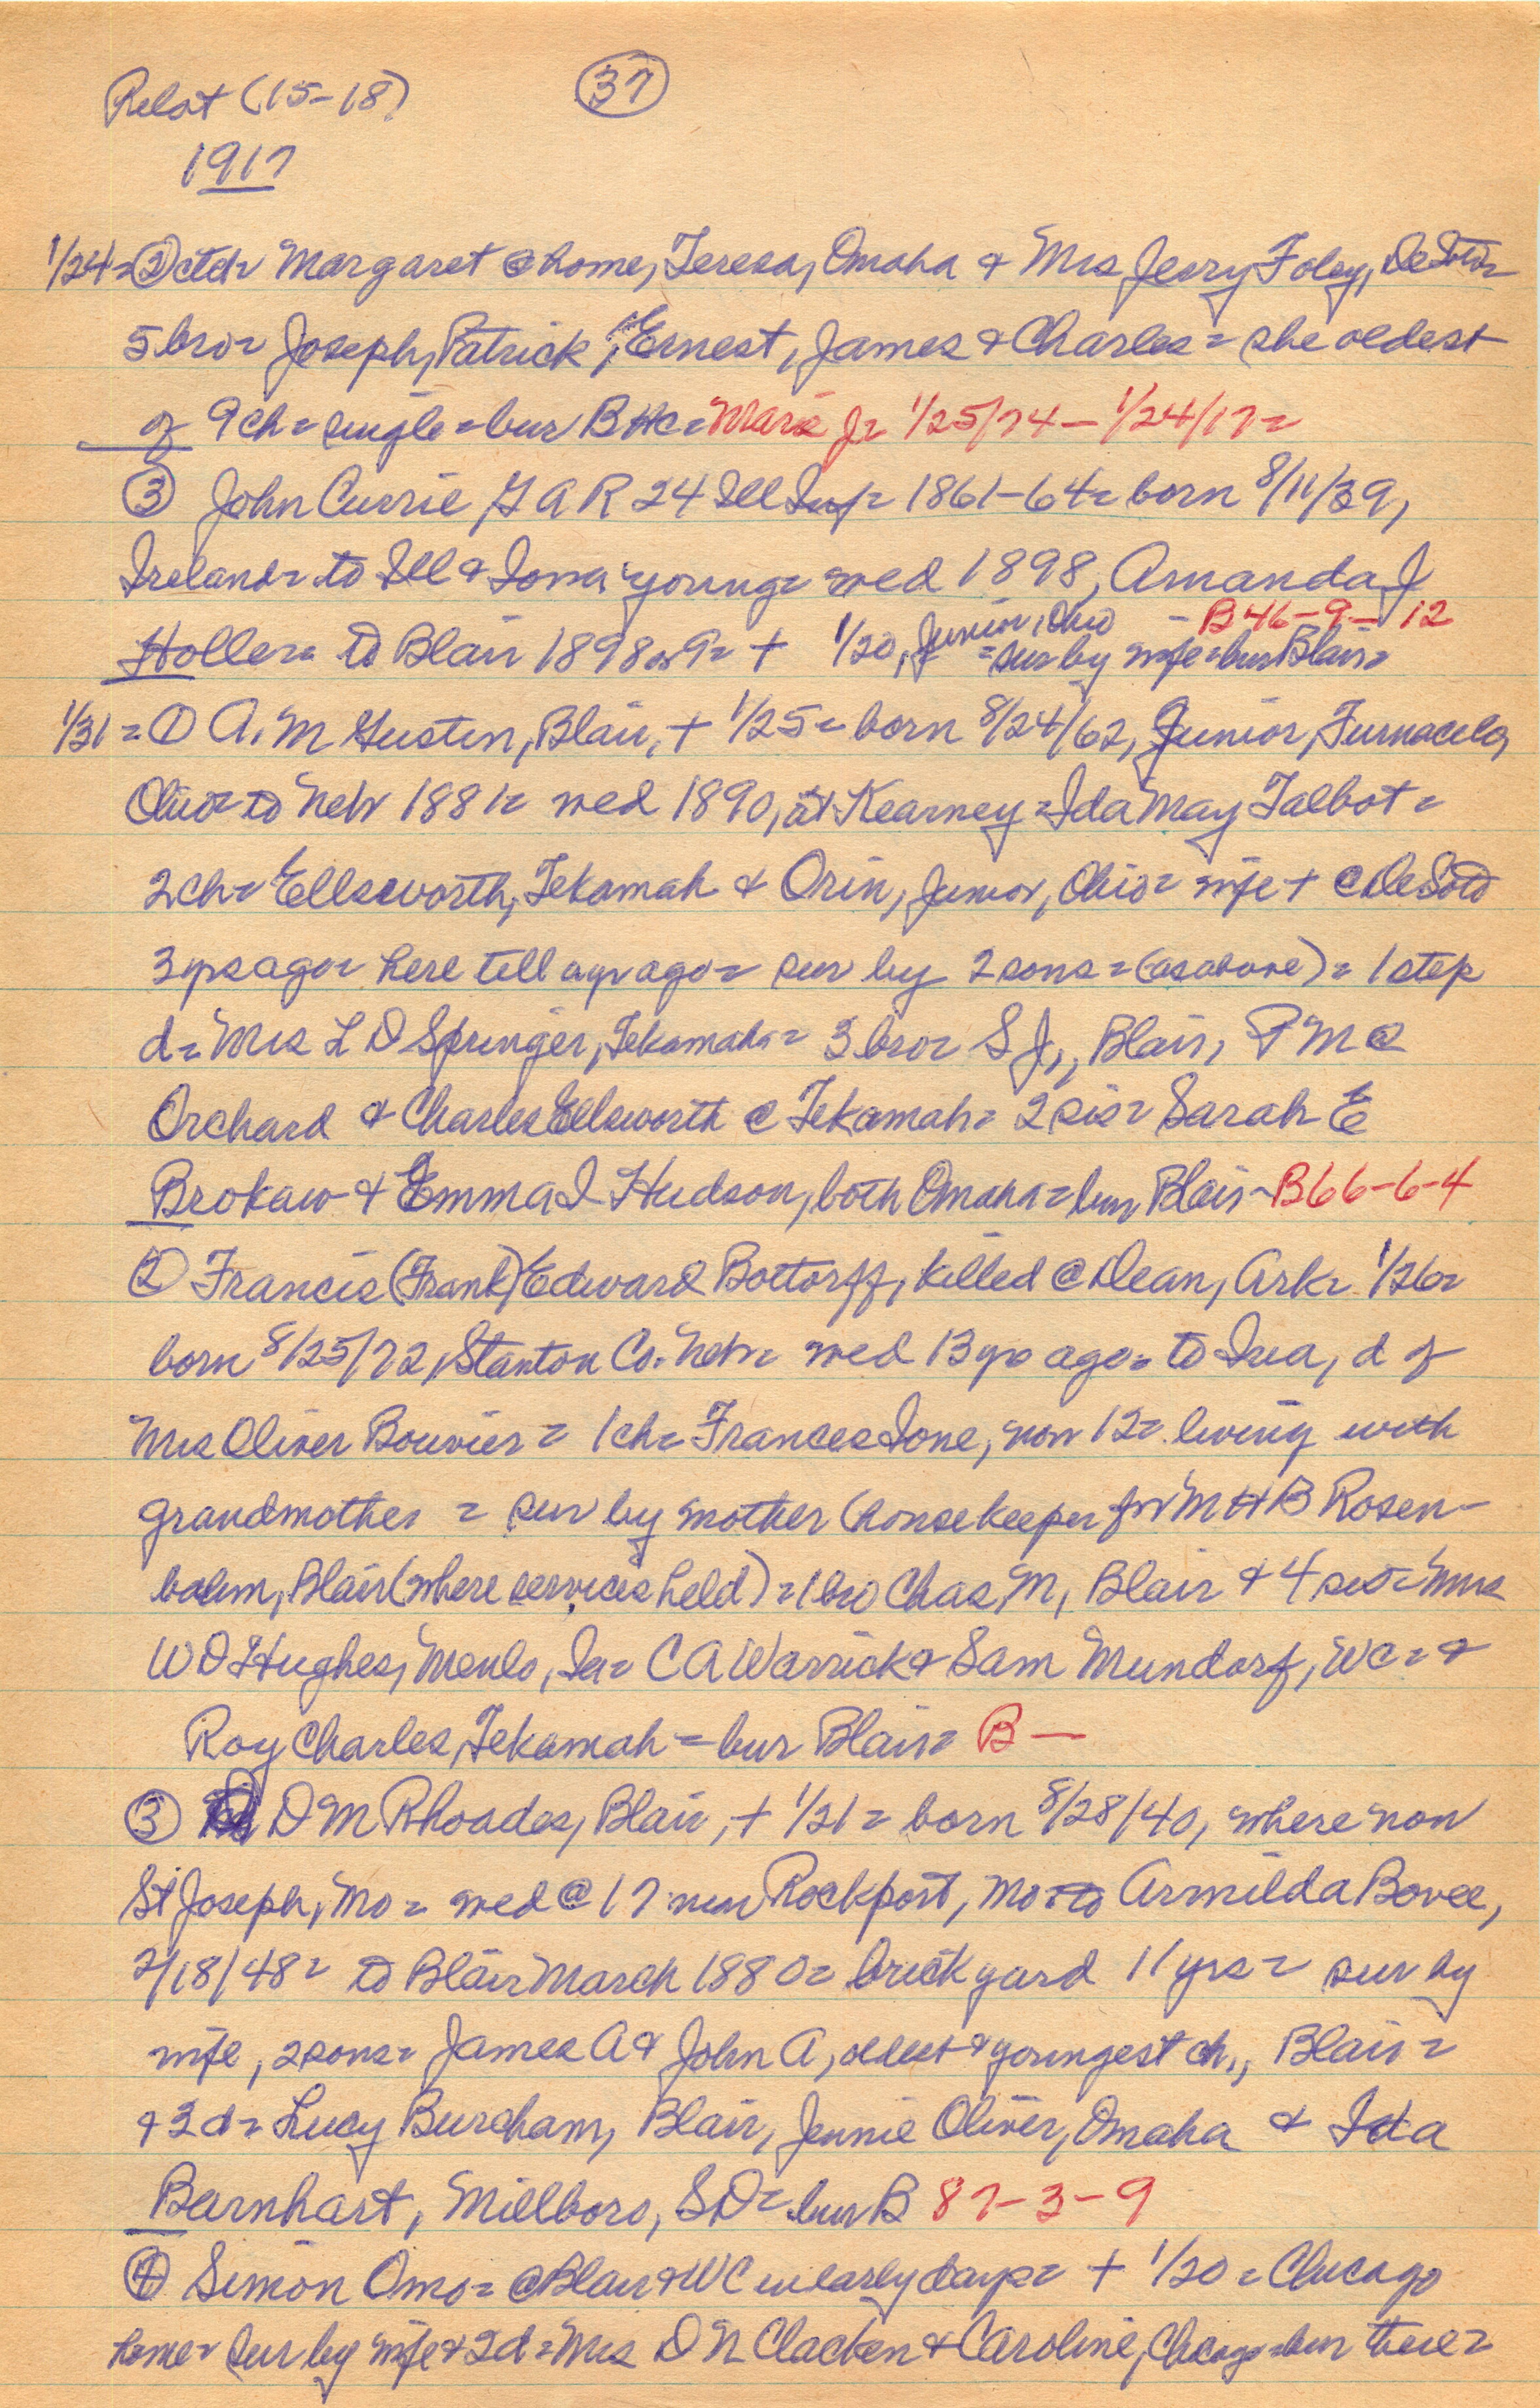 Pilot (15-18) 37
1917
1/24 = ② ctd = Margaret @ home, Teresa, Omaha & Mrs Jerry Foley, DeSoto =
5 bro = Joseph, Patrick, Ernest, James & Charles = she oldest
of 9 ch = single = bur BHC = Marie J = 1/25/74 - 1/24/17 =
③ John Currie, GAR 24 Ill Inf = 1861-64 = born 8/11/39,
Ireland = to Ill & Iowa young = wed 1898, Amanda J
Holler = to Blair 1898 or 9 = + 1/20, Junior, Ohio = sur by wife = bur Blair = B46-9-12
1/31 = ① A. M Gustin, Blair, + 1/25 = born 8/24/62, Junior, Furnace Co,
Ohio = to Neb 1881 = wed 1890, at Kearney = Ida May Talbot =
2 ch = Ellsworth, Tekamah & Orin, Junior, Ohio = wife + @ DeSoto
3 yrs ago = here till a yr ago = sur by 2 sons = (as above) = 1 step
d = Mrs L D Springer, Tekamah = 3 bro = S J, Blair, P M @
Orchard & Charles Ellsworth @ Tekamah = 2 sis = Sarah E
Brokaw & Emma I Hudson, both Omaha = bur Blair - B66-6-4
② Francis (Frank) Edward Bottorff, killed @ Dean, Ark = 1/26 =
born 8/25/72, Stanton Co. Neb = wed 13 yrs ago = to Iva, d of
Mrs Oliver Bouvier = 1 ch = Frances Ione, now 12 = living with
grandmother = sur by mother (housekeeper for M H B Rosen-
balm, Blair (where services held) = 1 bro Chas M, Blair & 4 sis = Mrs
W D Hughes, Menlo, Ia = C A Warrick & Sam Mundorf, WC = &
Roy Charles, Tekamah = bur Blair = B —
③ D M Rhoades, Blair, + 1/21 = born 8/28/40, where now
St Joseph, Mo = wed @ 17 near Rockport, Mo = to Armilda Bovee,
2/18/48 = to Blair March 1880 = brick yard 11 yrs = sur by
wife, 2 sons = James A & John A, oldest & youngest ch., Blair =
& 3 d = Lucy Burcham, Blair, Jennie Oliver, Omaha & Ida
Barnhart, Millboro, SD = bur B 87-3-9
④ Simon Omo = @ Blair & WC in early days = + 1/20 = Chicago
home = sur by wife & 2 d = Mrs D N Clacken & Caroline, Chicago = bur there =